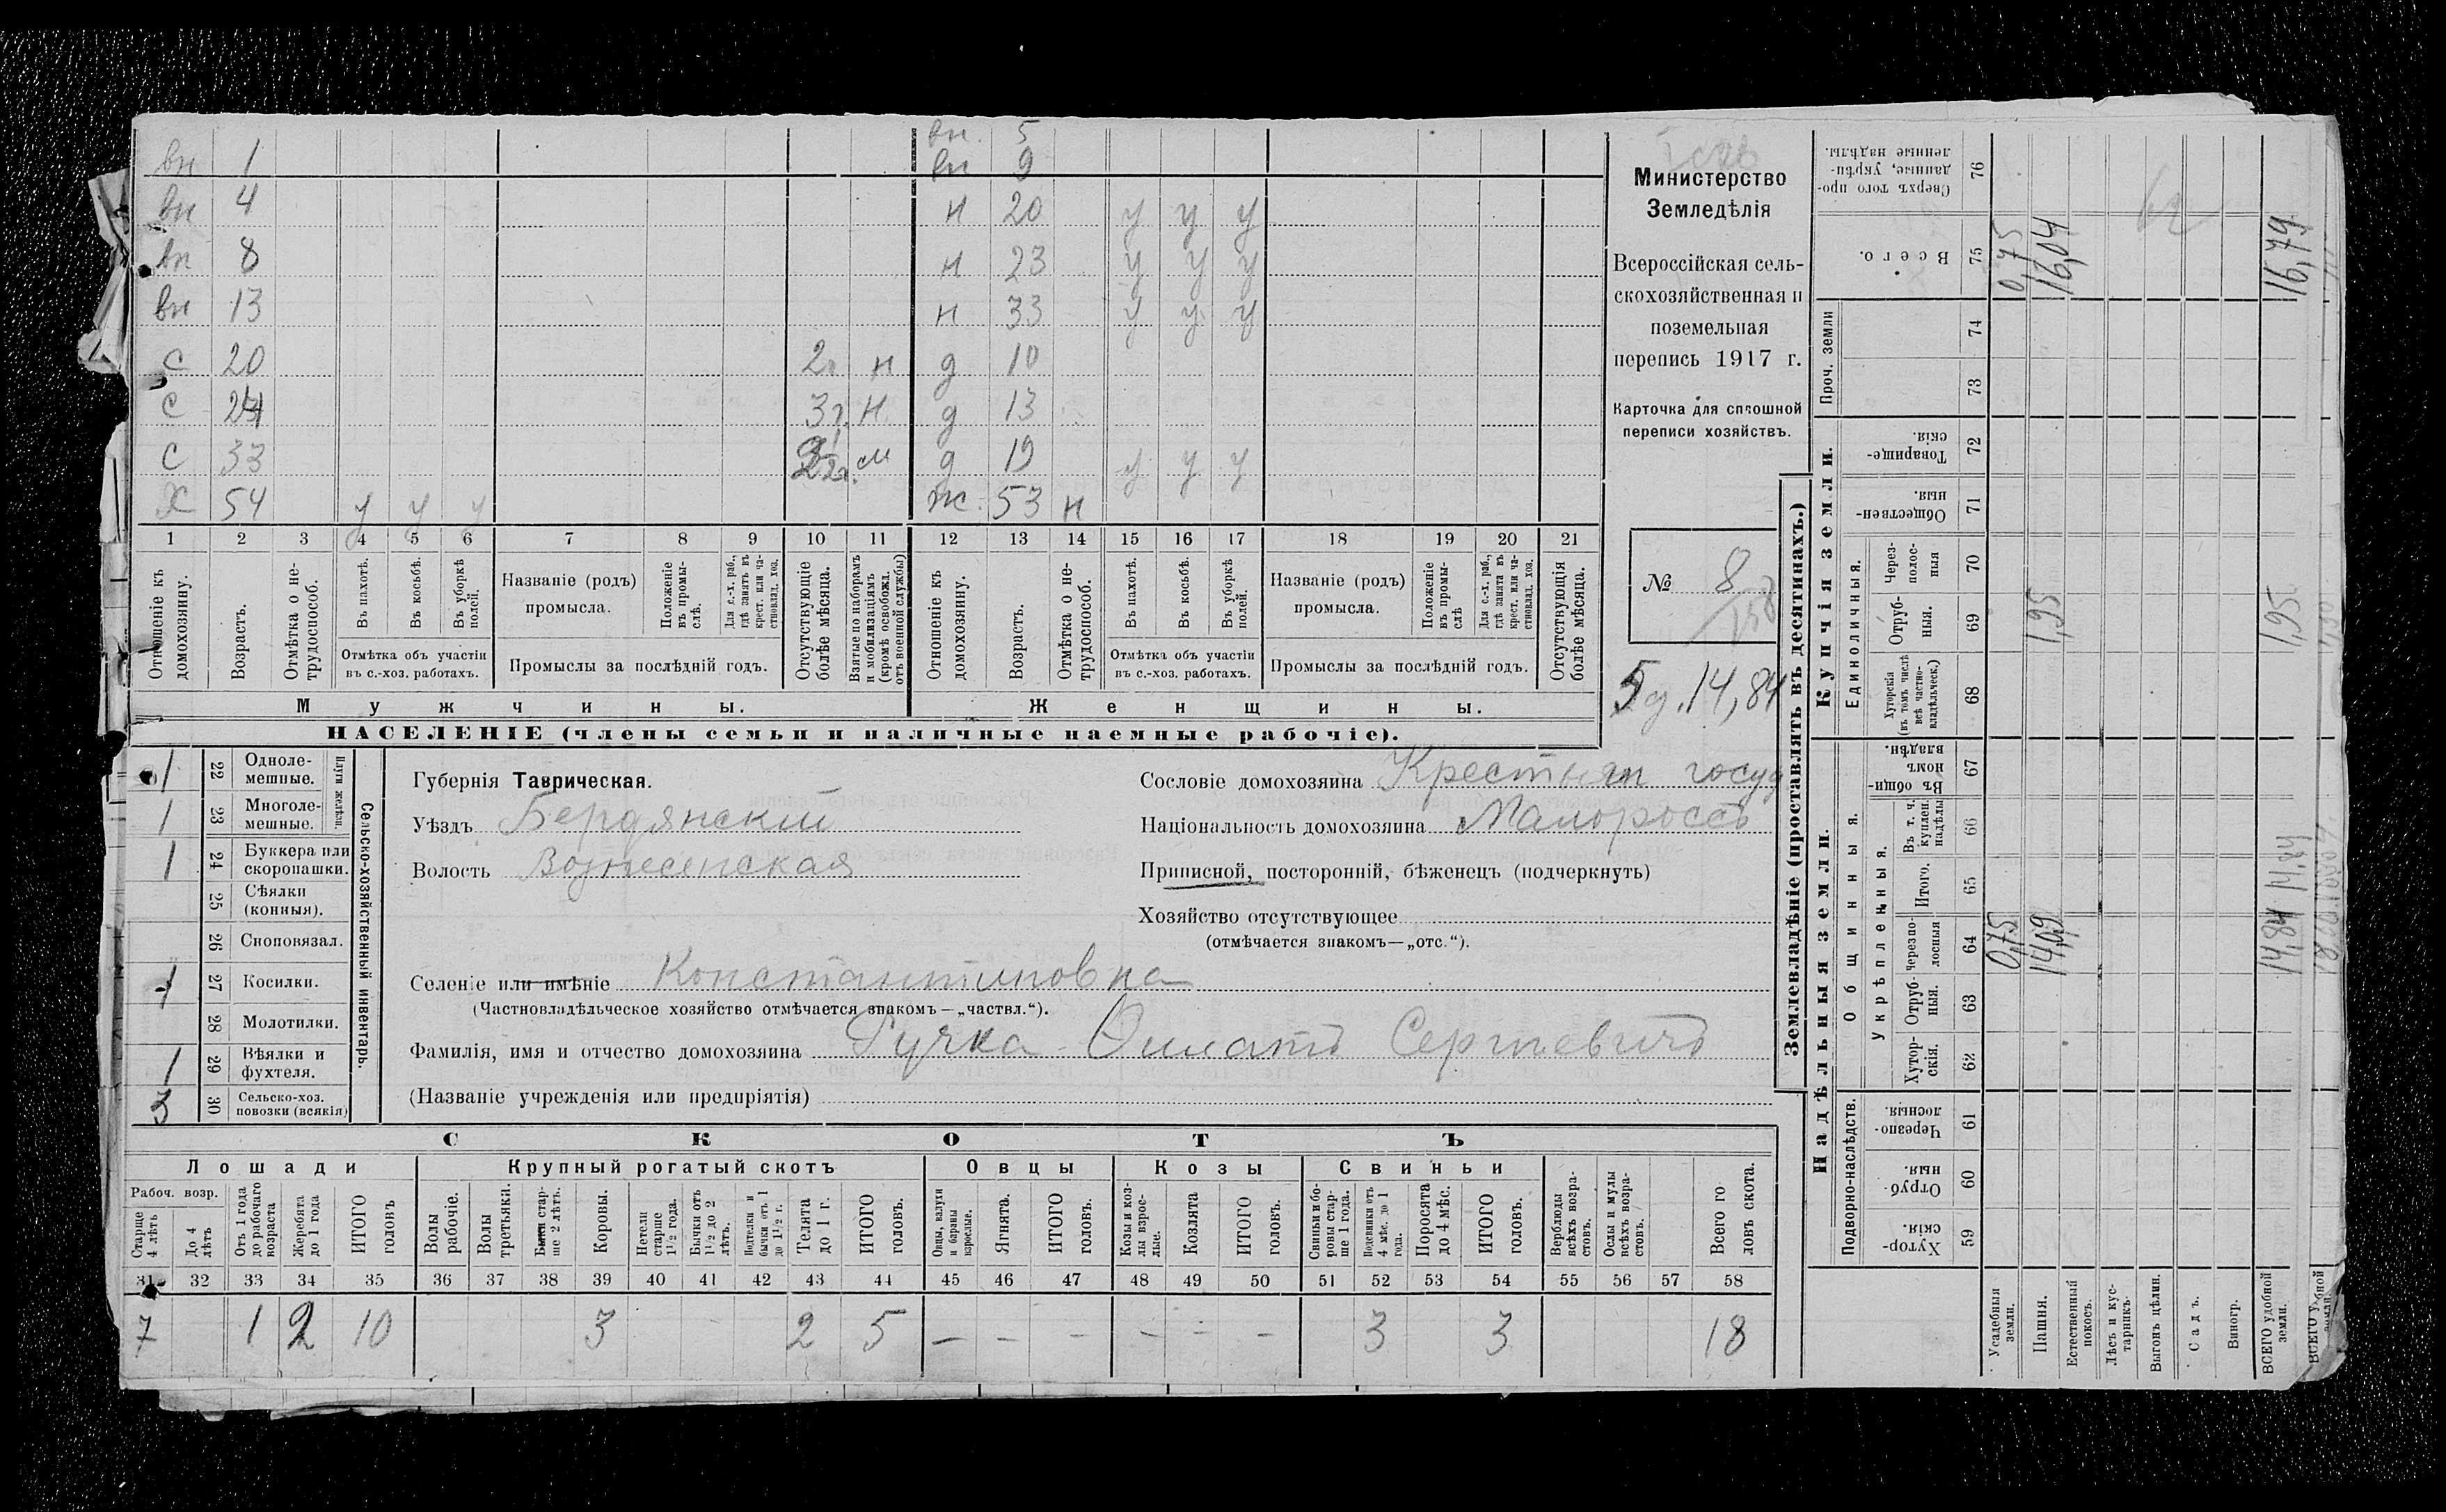 вн 1 вн. 5
вн 9
вн 4 н 20 у у у
вн 8 н 23 у у у
вн 13 н 33 у у у
с 20 2г н д 10
с 24 3г. н д 13
с 33 м д 19 у у у
Х 54 у у у ж. 53 н
1 2 3 4 5 6 7 8 9 10 11 12 13 14 15 16 17 18 19 20 21
Отношеніе къ домохозяину.
Возрастъ.
Отмѣтка о не-трудоспособ.
Въ пахотѣ.
Въ косьбѣ.
Въ уборкѣ полей.
Отмѣтка объ участіи
въ с.-хоз. работахъ.
Названіе (родъ)
промысла.
Положеніе въ промы-слѣ.
Для с.-х. раб., гдѣ занятъ въ крест. или ча-стновлад. хоз.
Промыслы за послѣдній годъ.
Отсутствующіе болѣе мѣсяца.
Взятые по наборамъ и мобилизаціямъ (кромѣ освобожд. отъ военной службы)
Отношеніе къ домохозяину.
Возрастъ.
Отмѣтка о не-трудоспособ.
Въ пахотѣ.
Въ косьбѣ.
Въ уборкѣ полей.
Отмѣтка объ участіи
въ с.-хоз. работахъ.
Названіе (родъ)
промысла.
Положеніе въ промы-слѣ
Для с.-х. раб., гдѣ занята въ крест. или ча-стновлад. хоз.
Промыслы за послѣдній годъ.
Отсутствующія болѣе мѣсяца.
Мужчины.
Женщины.
НАСЕЛЕНІЕ (члены семьи и наличные наемные рабочіе).
Министерство
Земледѣлія
Всероссійская сель-
скохозяйственная и
поземельная
перепись 1917 г.
Карточка для сплошной
переписи хозяйствъ.
№ 8
5д. 14,84
Сельско-хозяйственный инвентарь.
Плуги желѣзн.
1 22 Одноле-
мешные.
1 23 Многоле-
мешные.
1 24 Буккера или
скоропашки.
25 Сѣялки
(конныя).
26 Сноповязал.
1 27 Косилки.
28 Молотилки.
1 29 Вѣялки и
фухтеля.
3 30 Сельско-хоз.
повозки (всякія)
Губернія Таврическая.
Уѣздъ Бердянскій
Волость Вознесенская
Сословіе домохозяина Крестьян госуд
Національность домохозяина Малороссъ
Приписной, посторонній, бѣженецъ (подчеркнуть)
Хозяйство отсутствующее
(отмѣчается знакомъ—„отс.“).
Селеніе или имѣніе Константиновка
(Частновладѣльческое хозяйство отмѣчается знакомъ—„частвл.“).
Фамилія, имя и отчество домохозяина Ручка Сергѣевичъ
(Названіе учрежденія или предпріятія)
СКОТЪ
Лошади Крупный рогатый скотъ Овцы Козы Свиньи
Рабоч. возр.
Старше 4 лѣтъ
До 4 лѣтъ
Отъ 1 года до рабочаго возраста
Жеребята до 1 года
ИТОГО головъ
Волы рабочіе.
Волы третьяки.
Быки стар-ше 2 лѣтъ.
Коровы.
Нетели старше 1½ года.
Бычки отъ 1½ до 2 лѣтъ.
Подтелки и бычки отъ 1 до 1½ г.
Телята до 1 г.
ИТОГО головъ.
Овцы, валухи и бараны взрослые.
Ягнята.
ИТОГО головъ.
Козы и коз-лы взрос-лые.
Козлята
ИТОГО головъ.
Свиньи и бо-ровы стар-ше 1 года.
Подсвинки отъ 4 мѣс. до 1 года.
Поросята до 4 мѣс.
ИТОГО головъ.
Верблюды всѣхъ возра-стовъ.
Ослы и мулы всѣхъ возра-стовъ.
Всего го-ловъ скота.
31 32 33 34 35 36 37 38 39 40 41 42 43 44 45 46 47 48 49 50 51 52 53 54 55 56 57 58
7 1 2 10 3 2 5 — — — — — — 3 3 18
Землевладѣніе (проставлять въ десятинахъ.)
Купчія земли.
Надѣльныя земли.
Сверхъ того про-данные, укрѣп-ленные надѣлы. 76
Всего. 75
Проч. земли 74 73
Товарище-скія. 72
Обществен-ныя. 71
Единоличныя.
Через-полос-ныя 70
Отруб-ныя. 69
Хуторскія (въ томъ числѣ всѣ частно-владѣльческ.) 68
Общинныя.
Въ общин-номъ владѣн. 67
Укрѣпленныя.
Въ т. ч. куплен. надѣлы 66
Итого. 65
Черезпо-лосныя 64
Отруб-ныя. 63
Хутор-скія. 62
Подворно-наслѣдств.
Черезпо-лосныя. 61
Отруб-ныя. 60
Хутор-скія. 59
Усадебныя земли. 0,75 0,75
Пашня. 14,09 1,95 16,04
Естественный покосъ.
Лѣсъ и кус-тарникъ.
Выгонъ цѣлин.
Садъ.
Виногр.
ВСЕГО удобной земли. 14,84 14,84 1,95 16,79